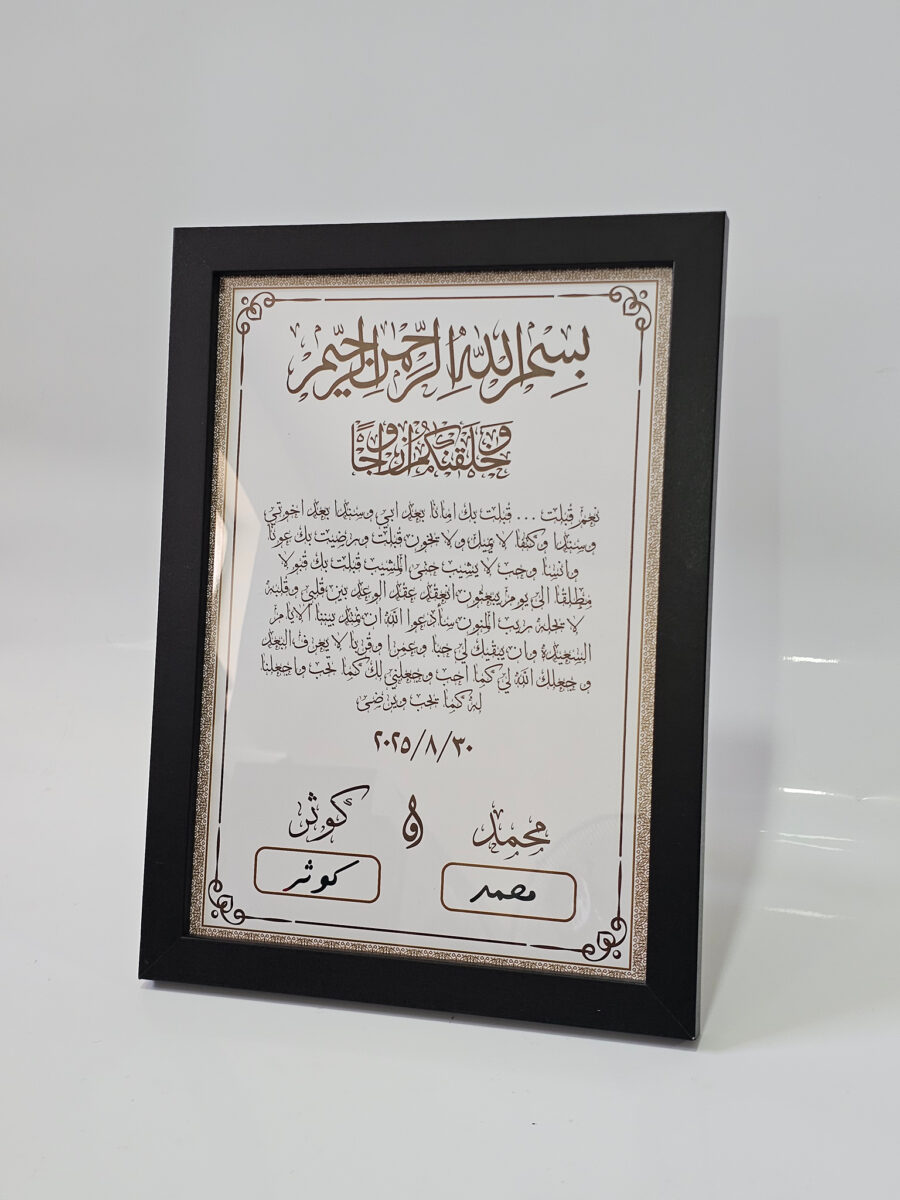 بِسْمِ اللَّهِ الرَّحْمَنِ الرَّحِيمِ
وَخَلَقْنَكُمْ أَزْوَاجًا
نعم قبلت ... قبلت بك امانا بعد ابي وسندا بعد اخوتي
وسندا وكتفا لا يميل ولا يخون قبلت ورضيت بك عونا
وانسا وحب لا يشيب حتى المشيب قبلت بك قبولا
مطلقا الى يوم يبعثون انعقد عقد الوعد بين قلبي وقلبه
لا يحله ريب المنون سأدعوا الله ان تمتد بيننا الايام
السعيدة وان يبقيك لي حبا وعمرا وقربا لا يعرف البعد
وجعلك الله لي كما احب وجعلني لك كما تحب واجعلنا
له كما يحب ويرضى
٢٠٢٥/٨/٣٠
محمد و كوثر
محمد كوثر